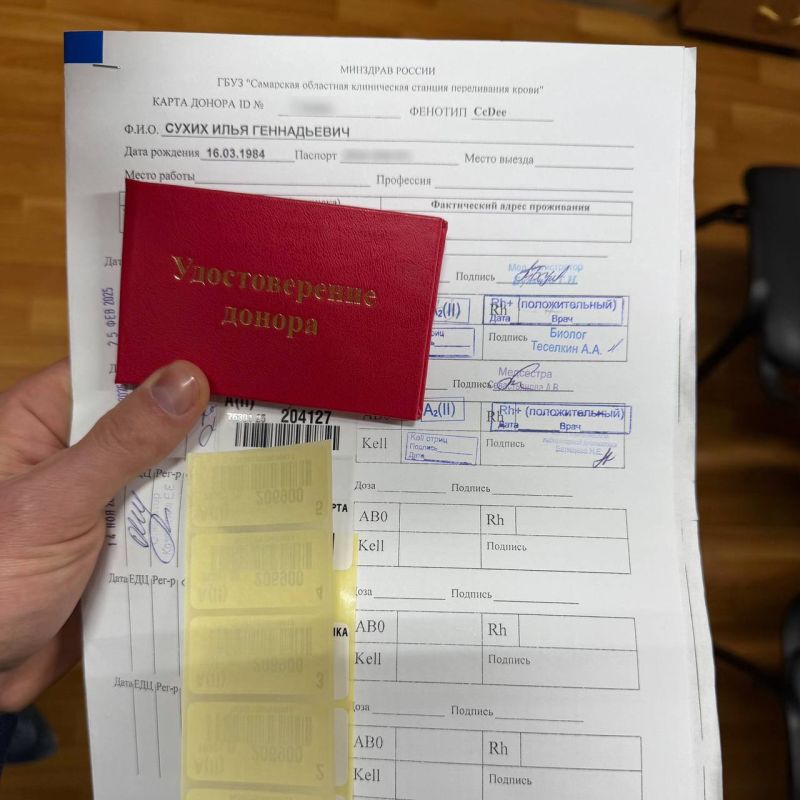 МИНЗДРАВ РОССИИ
ГБУЗ "Самарская областная клиническая станция переливания крови"
КАРТА ДОНОРА ID №
ФЕНОТИП CcDee
Ф.И.О. СУХИХ ИЛЬЯ ГЕННАДЬЕВИЧ
Дата рождения 16.03.1984 Паспорт Место выезда
Место работы Профессия
Фактический адрес проживания
Удостоверение
донора
25 ФЕВ 2025
Подпись
A₂(II) Rh Rh+ (положительный)
Дата Врач
Подпись Биолог
Теселкин А.А.
Медсестра
Подпись
A(II)
204127
AB0 A₂(II) Rh Rh+ (положительный)
Дата Врач
Kell Kell отриц Подпись
Подпись
Дата
14 НОЯ
ЕДЦ Рег-р
Доза Подпись
AB0 Rh
Kell Подпись
206900
5
РТА
Дата ЕДЦ Рег-р
Доза Подпись
206900
4
A(II)
НКА
AB0 Rh
Kell Подпись
206900
3
A(II)
Дата ЕДЦ Рег-р
Доза Подпись
AB0 Rh
Kell Подпись
206900
2
A(II)